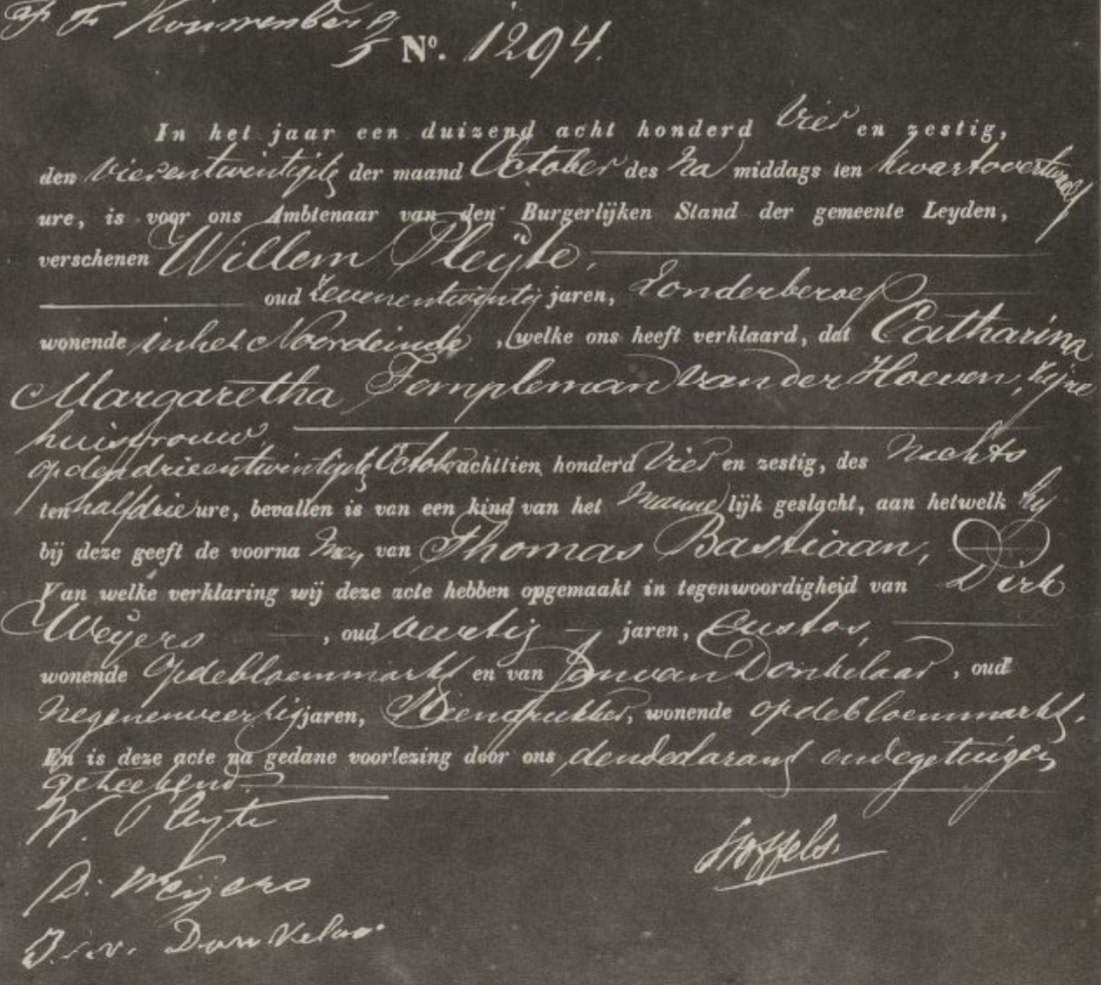 Nº. 1294.
In het jaar een duizend acht honderd Vier en zestig,
den Vierentwintigste der maand October des Na middags ten kwartovertwaalf
ure, is voor ons Ambtenaar van den Burgerlijken Stand der gemeente Leyden,
verschenen Willem Pleyte,
oud Zevenentwintig jaren, Zonderberoep
wonende inhet Noordeinde, welke ons heeft verklaard, dat Catharina
Margaretha Templeman van der Hoeven, zijne
huisvrouw,
opdendrieentwintigste October achttien honderd Vier en zestig, des Nachts
ten halfdrie ure, bevallen is van een kind van het Manne lijk geslacht, aan hetwelk hij
bij deze geeft de voorna men van Thomas Bastiaan,
Van welke verklaring wij deze acte hebben opgemaakt in tegenwoordigheid van Dirk
Weyers, oud veertig jaren, Custos,
wonende opdebloemmarkt en van Janvan Donkelaar, oud
Negenenveertig jaren, Steendrukker, wonende opdebloemmarkt.
En is deze acte na gedane voorlezing door ons, dendeclarant endegetuigen
geteekend.
W. Pleyte
Stoffels.
D. Weijers
J. v. Donkelaar